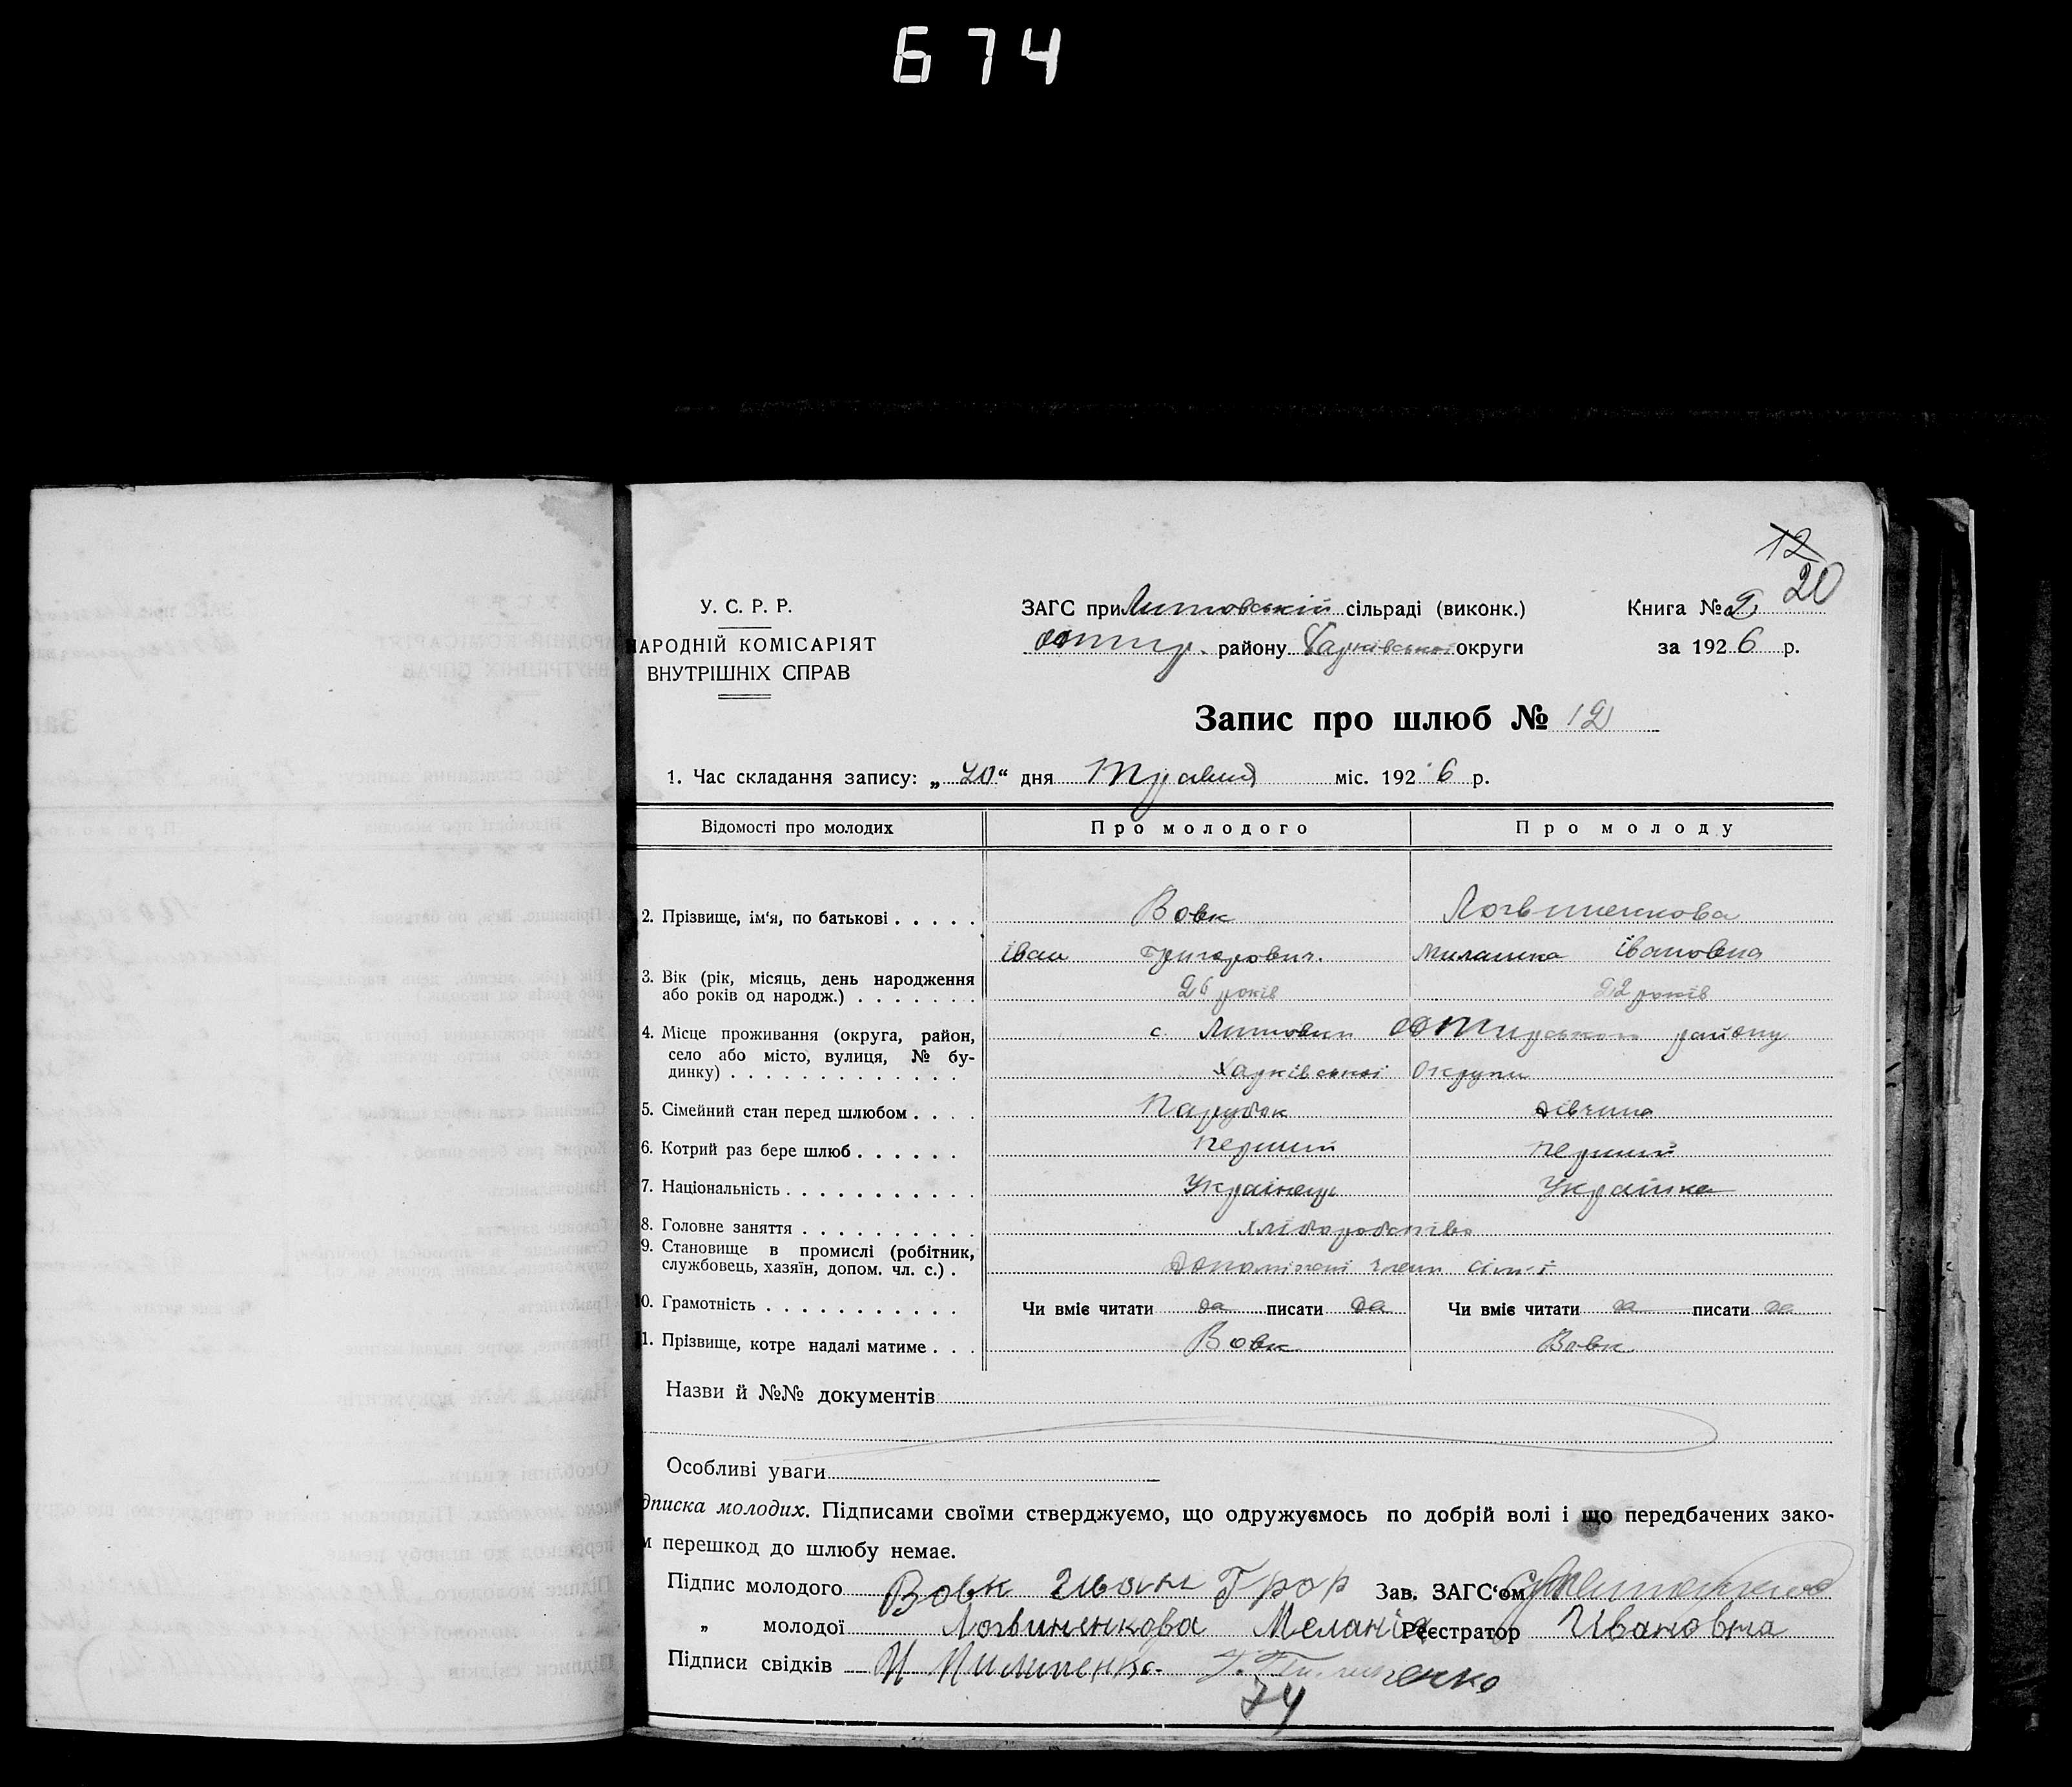 674
12
20
У. С. Р. Р.
НАРОДНІЙ КОМІСАРІЯТ
ВНУТРІШНІХ СПРАВ
ЗАГС при Литовській сільраді (виконк.)
району Харківської округи
Книга № 2
за 1926 р.
Запис про шлюб № 12
1. Час складання запису: „20“ дня Травня міс. 1926 р.
Відомості про молодих
Про молодого
Про молоду
2. Прізвище, ім‘я, по батькові . . . . . Вовк Логвиненкова
Іван Григорович. Миланка Івановна
3. Вік (рік, місяць, день народження
або років од народж.) . . . . . . . 26 років 22 років
4. Місце проживання (округа, район, с. Литовки району
село або місто, вулиця, № бу-
динку) . . . . . . . . . . . . . Харківської Округи
5. Сімейний стан перед шлюбом . . . . Парубок дівчина
6. Котрий раз бере шлюб . . . . . . перший перший
7. Національність . . . . . . . . . . . Українець Українка
8. Головне заняття . . . . . . . . . . хліборобство
9. Становище в промислі (робітник,
службовець, хазяїн, допом. чл. с.) . члени сім‘ї
10. Грамотність . . . . . . . . . . . Чи вміє читати да писати да Чи вміє читати да писати да
11. Прізвище, котре надалі матиме . . . Вовк Вовк
Назви й №№ документів
Особливі уваги
дписка молодих. Підписами своїми стверджуємо, що одружуємось по добрій волі і що передбачених зако-
м перешкод до шлюбу немає.
Підпис молодого Вовк Иван Грор Зав. ЗАГС‘ом
„ молодої Логвиненкова Меланія Реєстратор Ивановна
Підписи свідків И Пилипенко
74